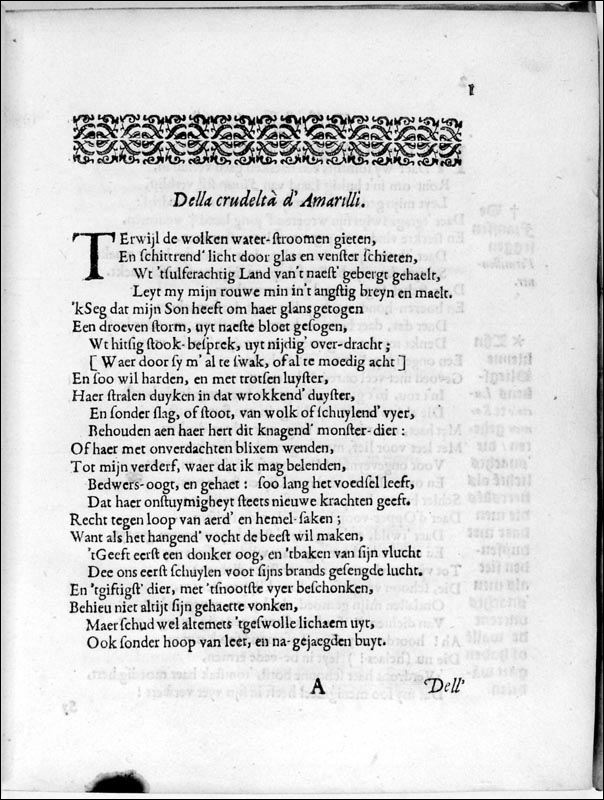 1
Della crudeltà d' Amarilli.
TErwijl de wolken water-stroomen gieten,
En schittrend' licht door glas en venster schieten,
Wt 'tsulferachtig Land van't naest' gebergt gehaelt,
Leyt my mijn rouwe min in't angstig breyn en maelt.
'kSeg dat mijn Son heeft om haer glans getogen
Een droeven storm, uyt naeste bloet gesogen,
Wt hitsig stook-besprek, uyt nijdig' over-dracht;
[ Waer door sy m' al te swak, of al te moedig acht ]
En soo wil harden, en met trotsen luyster,
Haer stralen duyken in dat wrokkend' duyster,
En sonder slag, of stoot, van wolk of schuylend' vyer,
Behouden aen haer hert dit knagend' monster-dier:
Of haer met onverdachten blixem wenden,
Tot mijn verderf, waer dat ik mag belenden,
Bedwers-oogt, en gehaet: soo lang het voedsel leeft,
Dat haer onstuymigheyt steets nieuwe krachten geeft.
Recht tegen loop van aerd' en hemel-saken;
Want als het hangend' vocht de beest wil maken,
'tGeeft eerst een donker oog, en 'tbaken van sijn vlucht
Dee ons eerst schuylen voor sijns brands gesengde lucht.
En 'tgiftigst' dier, met 'tsnootste vyer beschonken,
Behieu niet altijt sijn gehaette vonken,
Maer schud wel altemets 'tgeswolle lichaem uyt,
Ook sonder hoop van leet, en na-gejaegden buyt.
A
Dell'